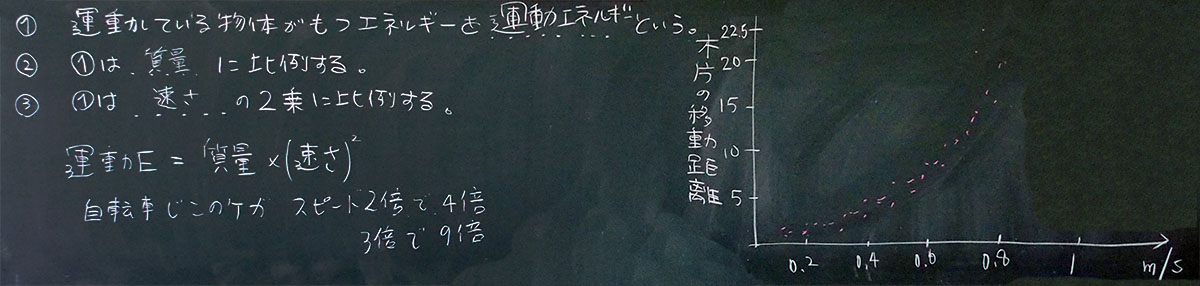 ① 運動している物体がもつエネルギーを運動エネルギーという。
② ①は 質量 に比例する。
③ ①は 速さ の2乗に比例する。
運動E = 質量×(速さ)²
自転車じこのケガ スピード2倍で4倍
3倍で9倍
木片の移動距離
22.5
20
15
10
5
0.2 0.4 0.6 0.8 1 m/s